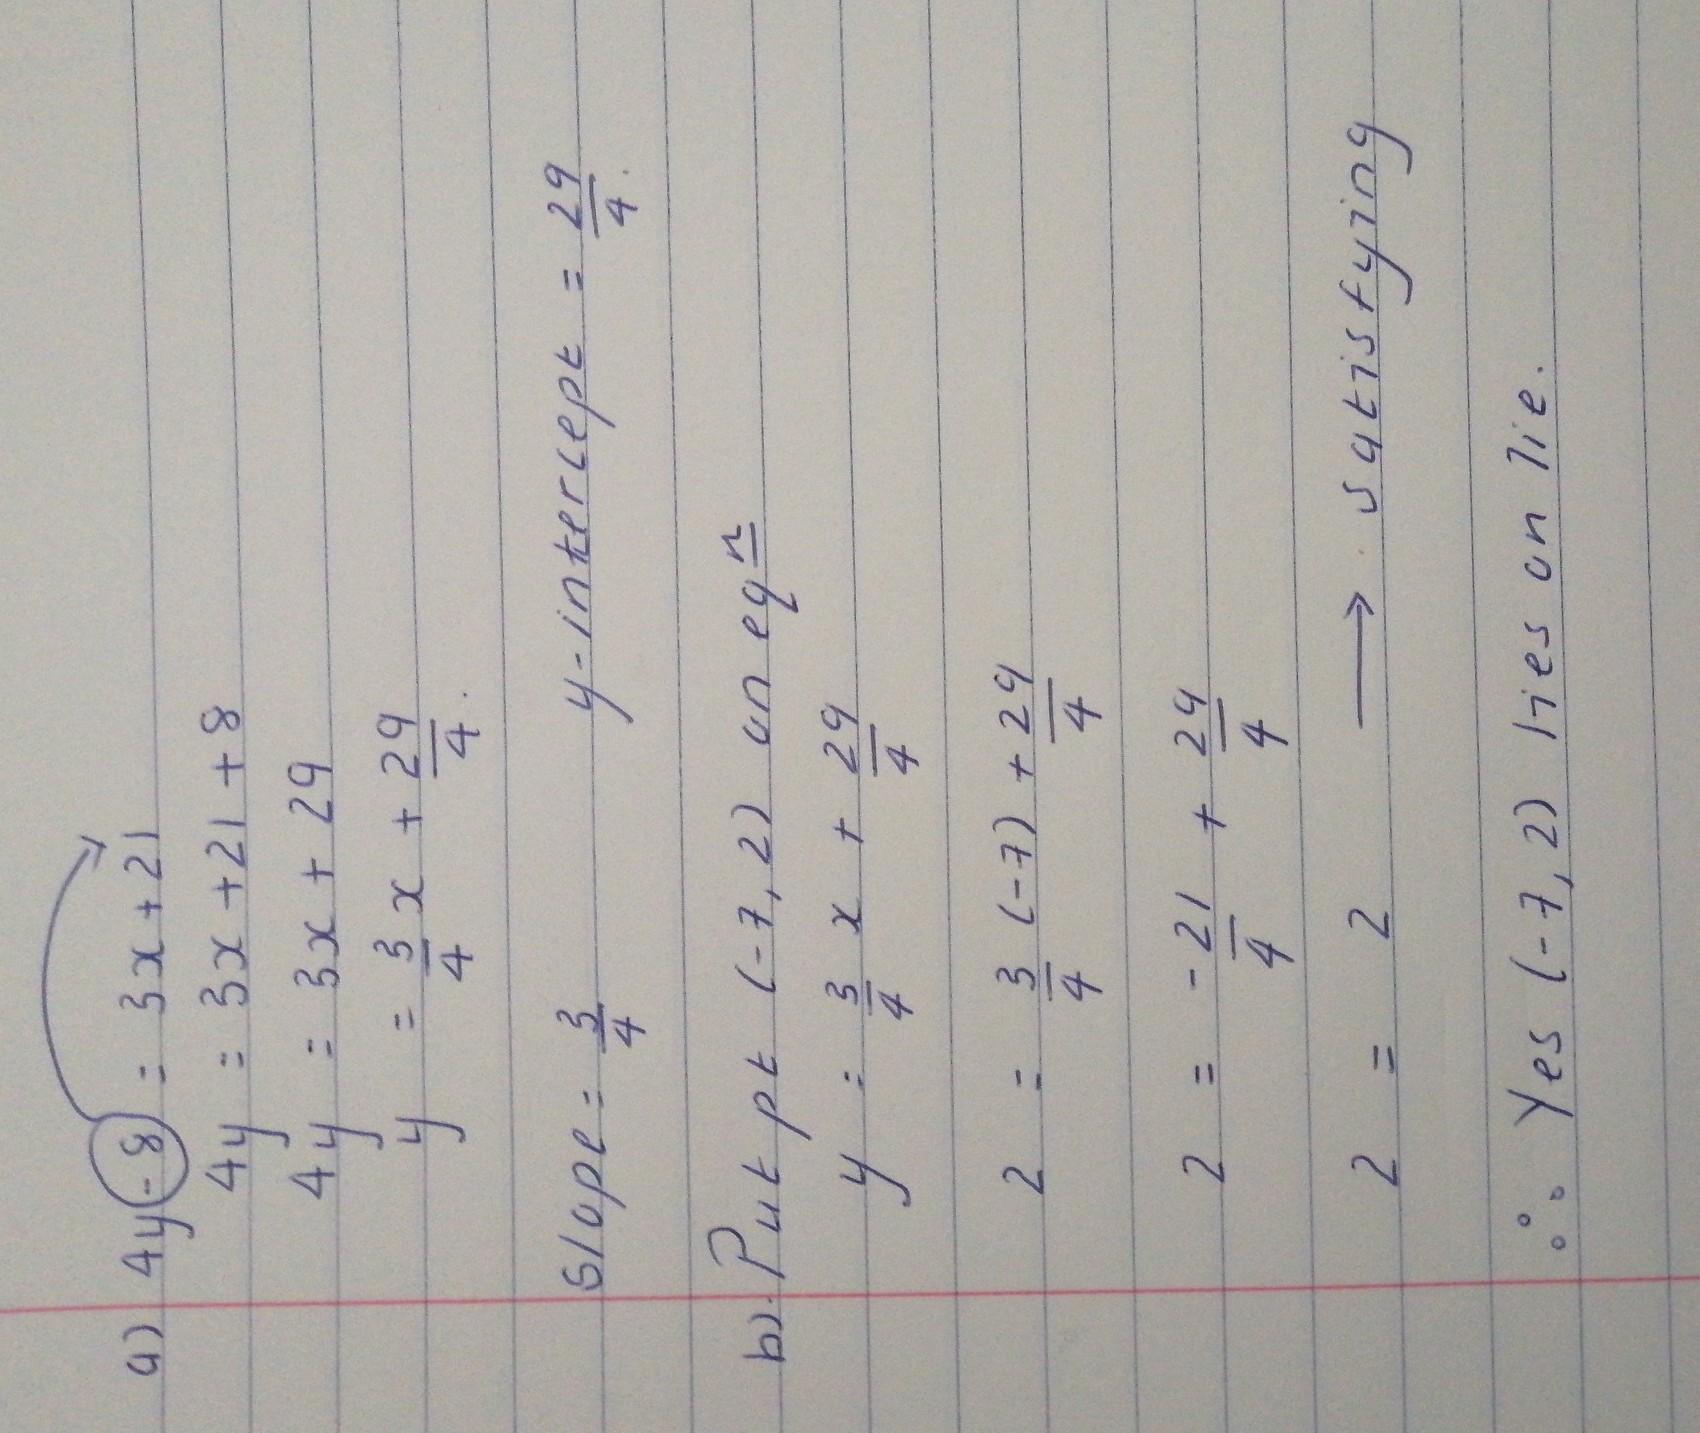 a) 4y - 8 = 3x + 21
4y = 3x + 21 + 8
4y = 3x + 29
y = 3/4 x + 29/4.
Slope = 3/4 y-intercept = 29/4.
b). Put pt (-7, 2) on eqn
y = 3/4 x + 29/4
2 = 3/4 (-7) + 29/4
2 = -21/4 + 29/4
2 = 2 → satisfying
∴ Yes (-7, 2) lies on lie.